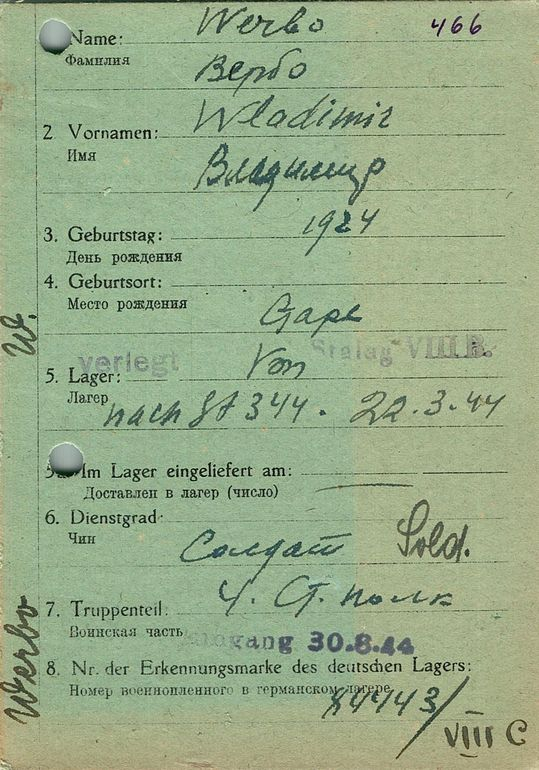 466
Name: Werbo
Фамилия Вербо
2 Vornamen: Wladimir
Имя Владимир
3. Geburtstag: 1924
День рождения
4. Geburtsort:
Место рождения
W.
verlegt Von Stalag VIII B.
5. Lager:
Лагер nach St 344. 22.3.44
Im Lager eingeliefert am:
Доставлен в лагер (число)
6. Dienstgrad
Чин Солдат Sold.
7. Truppenteil: 4. Ст. полк
Воинская часть
30.8.44
8. Nr. der Erkennungsmarke des deutschen Lagers:
Номер военнопленного в германском лагере
VIII C
Werbo